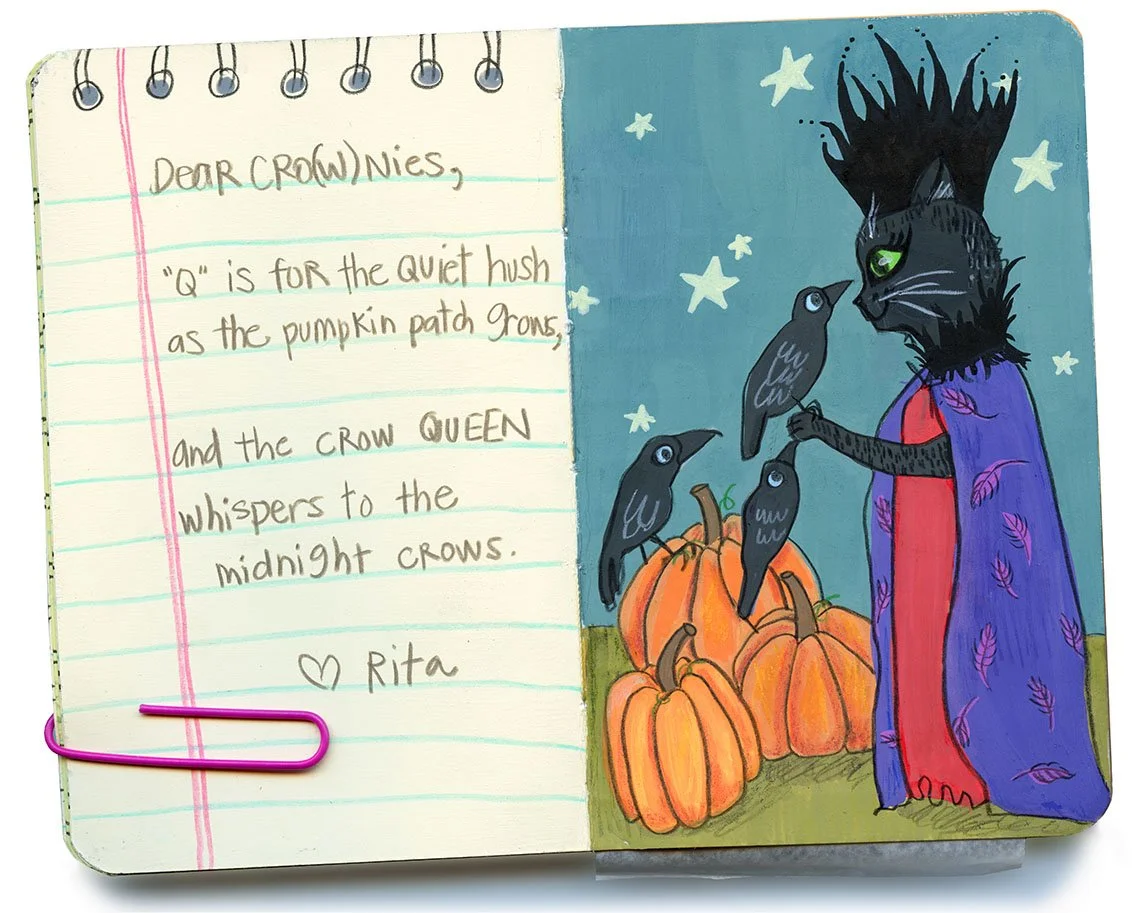 Dear CRO(W)Nies,
"Q" is foR the Quiet hush
as the pumpkin patch grows,
and the CROW QUEEN
whispers to the
midnight crows.
♡ Rita